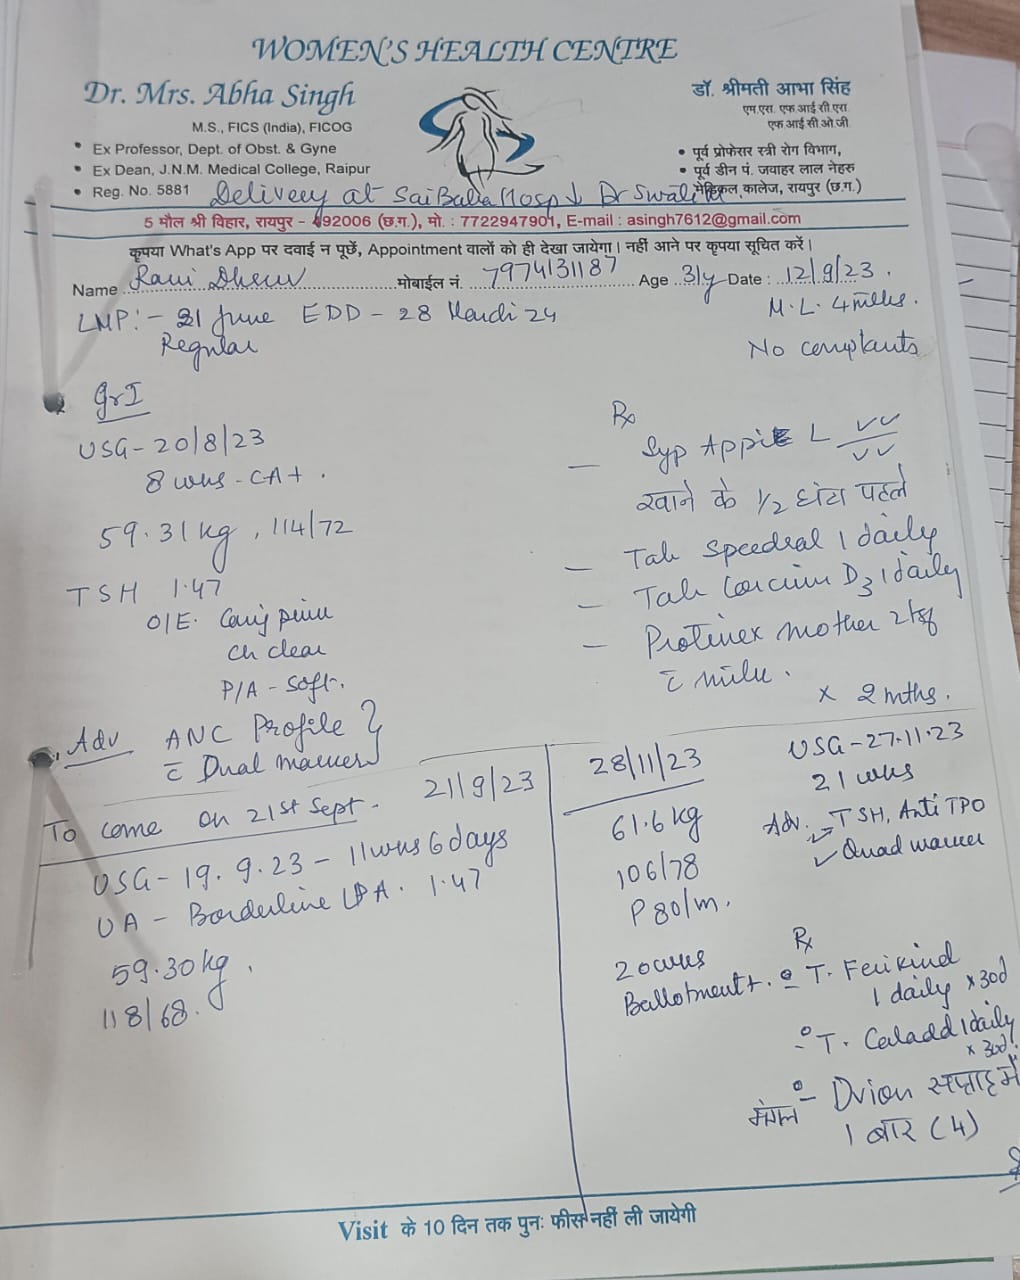 WOMEN'S HEALTH CENTRE
Dr. Mrs. Abha Singh
M.S., FICS (India), FICOG
• Ex Professor, Dept. of Obst. & Gyne
• Ex Dean, J.N.M. Medical College, Raipur
• Reg. No. 5881
डॉ. श्रीमती आभा सिंह
एम.एस. एफ आई सी एस.
एफ आई सी ओ जी
• पूर्व प्रोफेसर स्त्री रोग विभाग,
• पूर्व डीन पं. जवाहर लाल नेहरु
मेडिकल कालेज, रायपुर (छ.ग.)
Delivery at Sai Baba Hosp Dr
5 मौल श्री विहार, रायपुर - 492006 (छ.ग.), मो. : 7722947901, E-mail : asingh7612@gmail.com
कृपया What's App पर दवाई न पूछें, Appointment वालों को ही देखा जायेगा। नहीं आने पर कृपया सूचित करें।
Name मोबाईल नं. 7974131187 Age 31y Date : 12/9/23.
LMP:- 21 June EDD - 28 24
M.L. 4
Regular
No complaints
GrI
USG- 20/8/23
8 wks - CA+.
59.31 kg, 114/72
TSH 1.47
O/E.
Ch clear
P/A - soft.
Adv ANC Profile
c̄ Dual marker
To come on 21st Sept.
Rx
— Syp L
खाने के 1/2 घंटा पहले
— Tab 1 daily
— Tab D3 1 daily
— Protinex mother 2tsf
c̄ milk.
x 2 mths.
21/9/23
USG- 19.9.23 - 11wks 6days
UA - Borderline 1.47
59.30 kg.
118/68.
28/11/23
61.6 kg
106/78
P 80/m.
20 wks
Ballotment +.
USG-27.11.23
21 wks
Adv. TSH, Anti TPO
Quad marker
Rx
T. Ferikind
1 daily x 30d
T. 1 daily
x 30d.
मंगल - सप्ताह में
1 बार (4)
Visit के 10 दिन तक पुनः फीस नहीं ली जायेगी